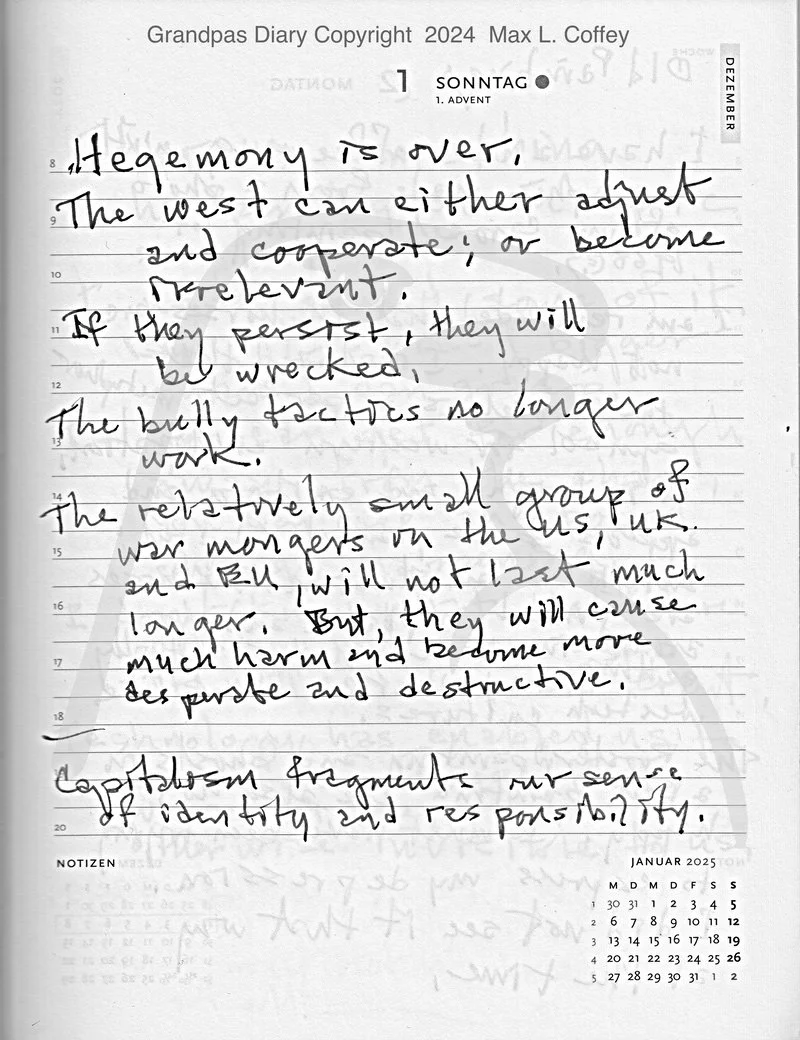 Grandpas Diary Copyright 2024 Max L. Coffey
1 SONNTAG
1. ADVENT
DEZEMBER
8 Hegemony is over.
9 The west can either adjust
and cooperate; or become
10 irrelevant.
11 If they persist, they will
12 be wrecked.
13 The bully tactics no longer
work.
14 The relatively small group of
15 war mongers in the US, UK
and EU, will not last much
16 longer. But, they will cause
17 much harm and become more
desperate and destructive.
18
Capitalism fragments our sense
20 of identity and responsibility.
NOTIZEN
JANUAR 2025
M D M D F S S
1 30 31 1 2 3 4 5
2 6 7 8 9 10 11 12
3 13 14 15 16 17 18 19
4 20 21 22 23 24 25 26
5 27 28 29 30 31 1 2